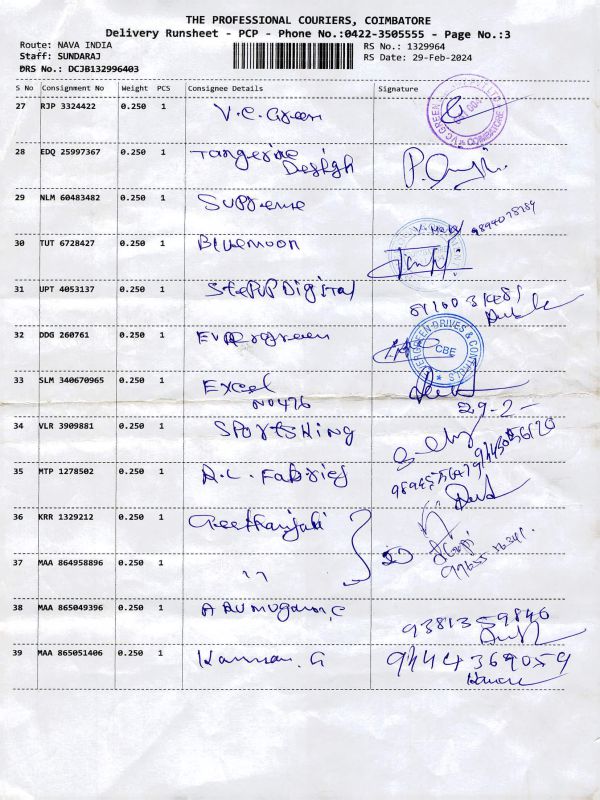 THE PROFESSIONAL COURIERS, COIMBATORE
Delivery Runsheet - PCP - Phone No.:0422-3505555 - Page No.:3
Route: NAVA INDIA RS No.: 1329964
Staff: SUNDARAJ RS Date: 29-Feb-2024
DRS No.: DCJB132996403
S No Consignment No Weight PCS Consignee Details Signature
27 RJP 3324422 0.250 1 V.C. Green
28 EDQ 25997367 0.250 1 Tangerine
Design
29 NLM 60483482 0.250 1 Supreme
30 TUT 6728427 0.250 1 Bluemoon
31 UPT 4053137 0.250 1 Stepup Digital
32 DDG 260761 0.250 1 Evergreen
EVERGREEN DRIVES & CONTROLS
CBE
33 SLM 340670965 0.250 1 Excel
No476
29-2-
34 VLR 3909881 0.250 1 Sportsking
35 MTP 1278502 0.250 1 A.C. Fabries
36 KRR 1329212 0.250 1 Geethanjali
37 MAA 864958896 0.250 1 "
38 MAA 865049396 0.250 1 Arumugam.C
9381359840
39 MAA 865051406 0.250 1 Kannan. G